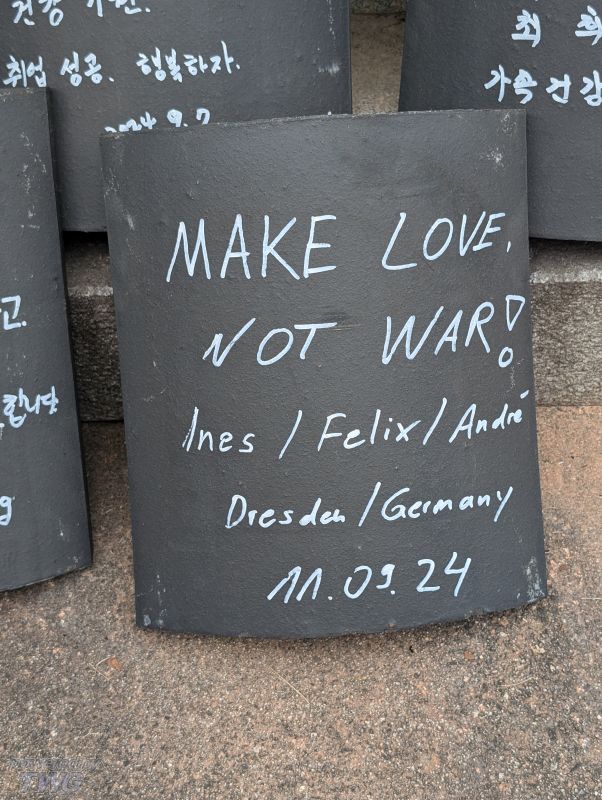 건강
취업 성공. 행복하자.
2024 9.7
최
가족건강
고.
합니다
MAKE LOVE,
NOT WAR!
Ines / Felix / André
Dresden / Germany
11.09.24